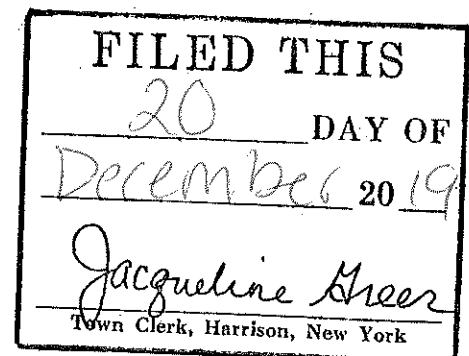 FILED THIS
20 DAY OF
December 20 19
Jacqueline Greer
Town Clerk, Harrison, New York